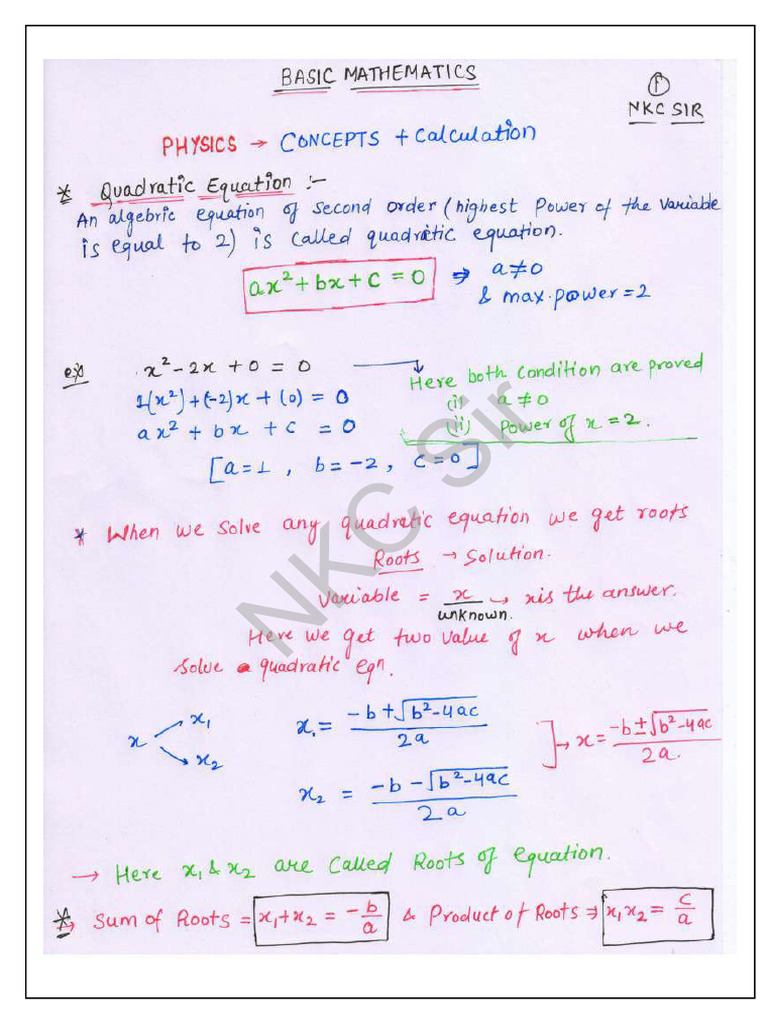 BASIC MATHEMATICS
NKC SIR
PHYSICS → CONCEPTS + Calculation
* Quadratic Equation :-
An algebric equation of second order (highest Power of the variable
is equal to 2) is called quadratic equation.
ax² + bx + c = 0 ⇒ a ≠ 0
& max. power = 2
ex) x² - 2x + 0 = 0
1(x²) + (-2)x + (0) = 0
ax² + bx + c = 0
[a = 1 , b = -2 , c = 0]
Here both condition are proved
(i) a ≠ 0
(ii) Power of x = 2.
* When we solve any quadratic equation we get roots
Roots → Solution.
Variable = x → x is the answer.
unknown.
Here we get two value of x when we
solve a quadratic eqn.
x x₁ x₂
x₁ = (-b + √(b² - 4ac)) / 2a
x₂ = (-b - √(b² - 4ac)) / 2a
] → x = (-b ± √(b² - 4ac)) / 2a.
→ Here x₁ & x₂ are called Roots of equation.
* Sum of Roots = x₁ + x₂ = -b/a & Product of Roots ⇒ x₁x₂ = c/a
NKC Sir